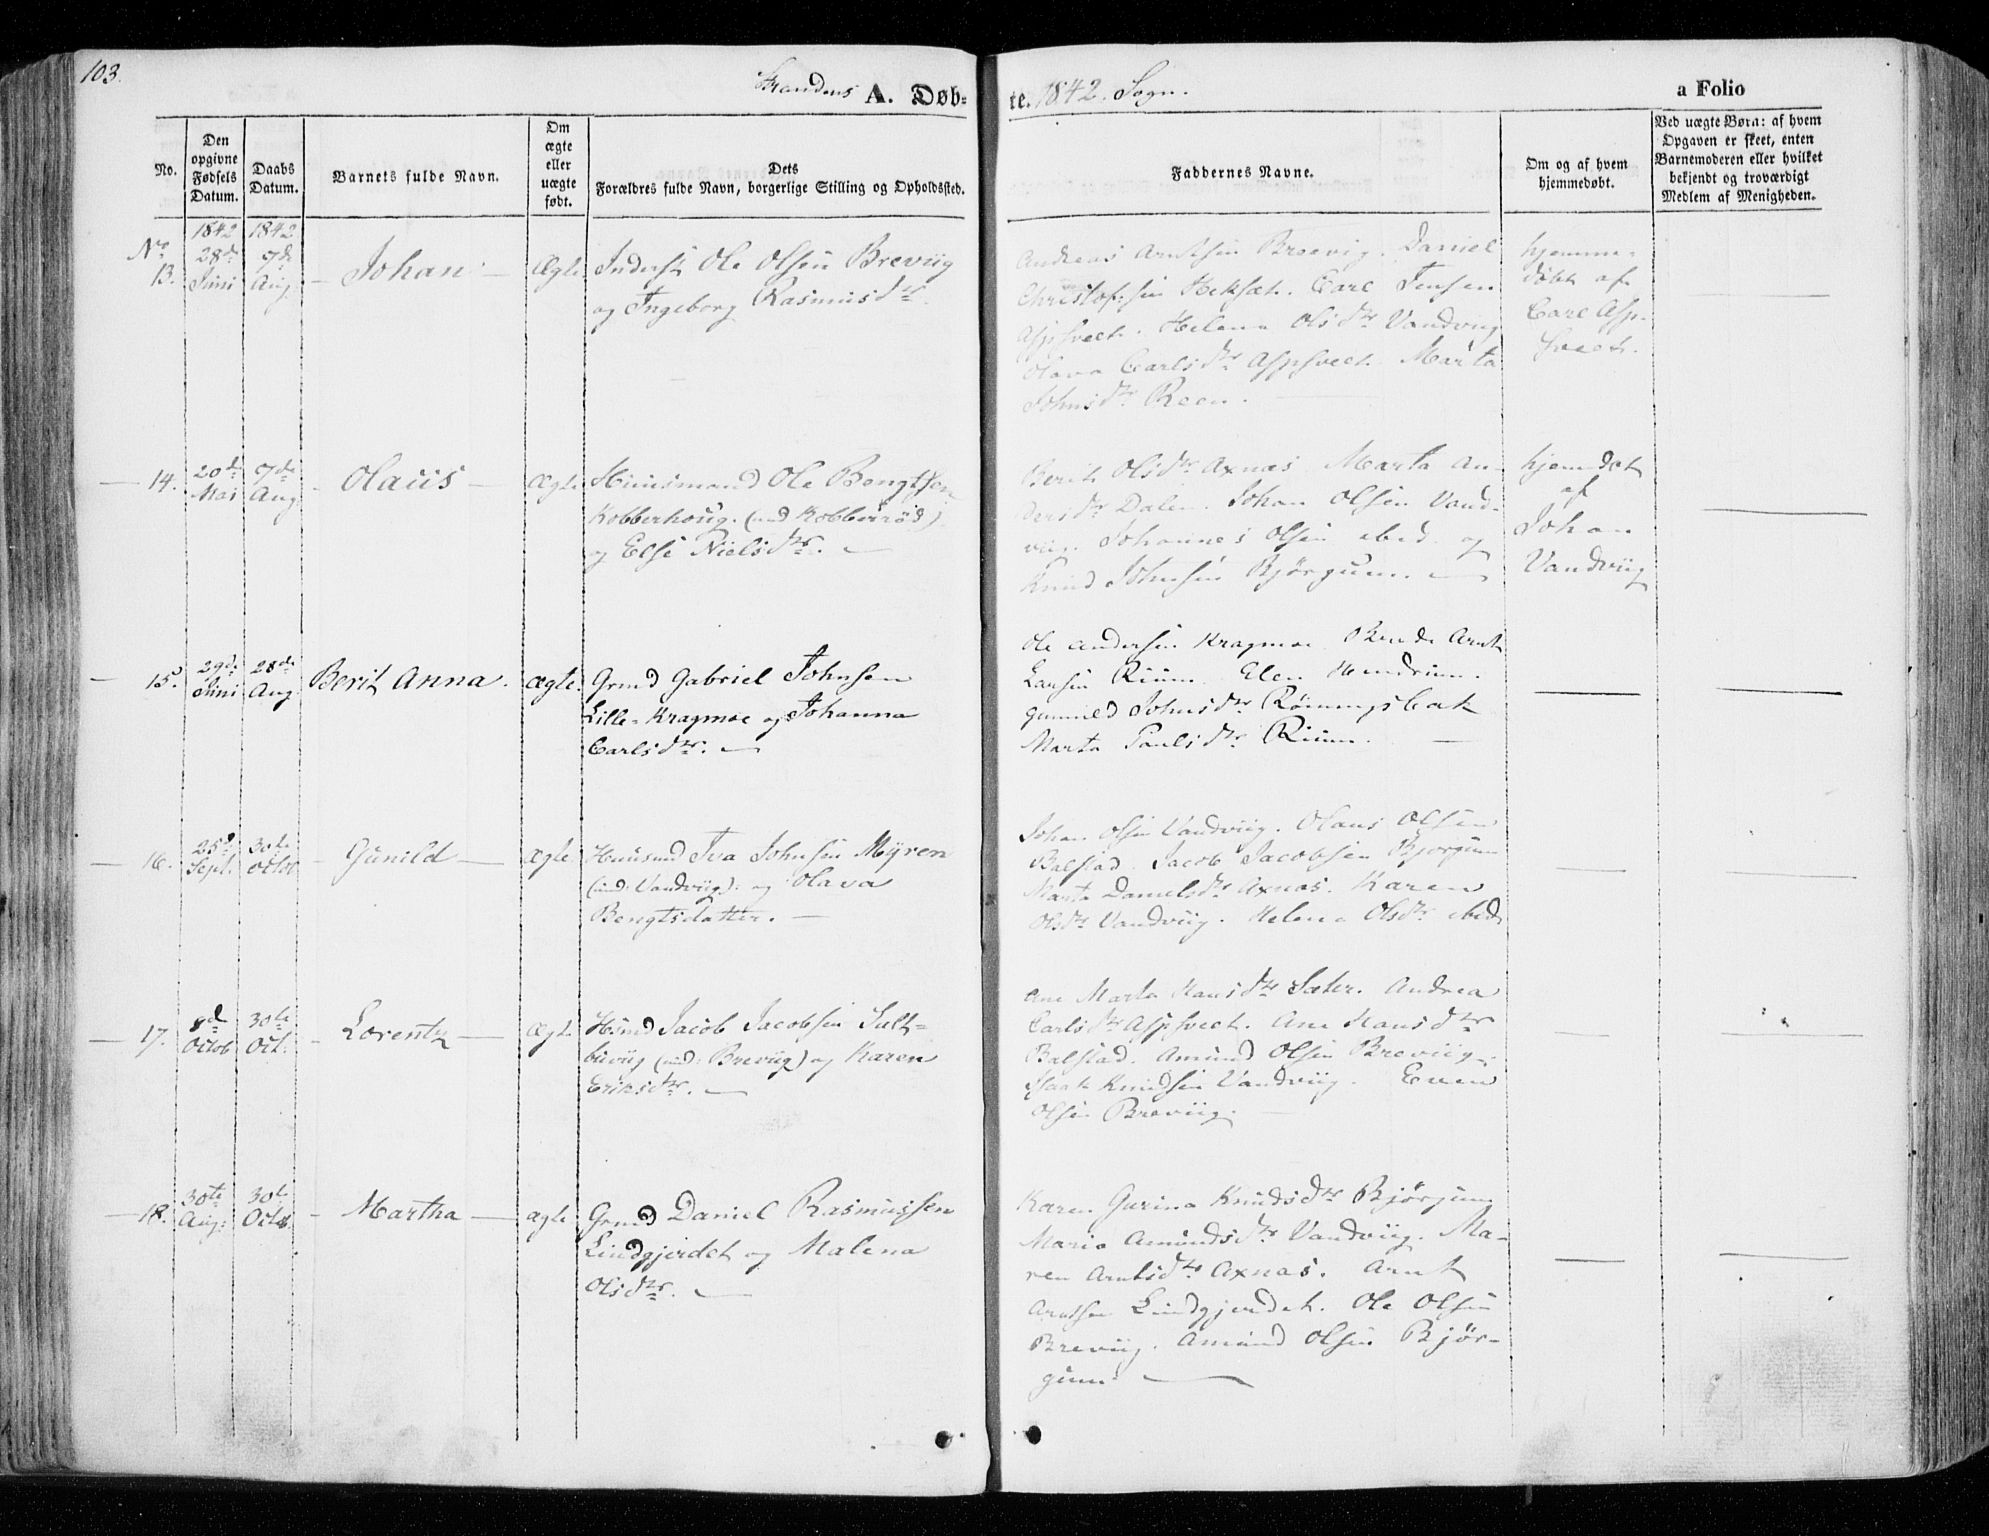 103.
Strandens A. Døb-
te. 1842. Sogn.
a Folio
No.
Den opgivne Fødsels Datum.
Daabs Datum.
Barnets fulde Navn.
Om ægte eller uægte født.
Dets Forældres fulde Navn, borgerlige Stilling og Opholdssted.
Faddernes Navne.
Om og af hvem hjemmedøbt.
Ved uægte Børn: af hvem Opgaven er skeet, enten Barnemoderen eller hvilket bekjendt og troværdigt Medlem af Menigheden.
1842 1842
No 13. 28de Juni 7de Aug. Johan Ægte
Inderst Ole Olsen Breviig
og Ingeborg Rasmusdtr
Andreas Arntsen Breevig. Daniel
Christofsen Heksæt. Carl Jensen
Aspsveet. Helena Olsdtr Vandviig
Olava Carlsdtr Aspsveet. Marta
Johnsdtr Reen.
hjemme-
døbt af
Carl Asp-
sveet.
14. 20de Mai 7de Aug. Olaus Ægte
Huusmand Ole Bengtsen
Kobberhoug. (und Kobberrød)
og Else Nielsdtr.
Berit Olsdtr Axnæs Marta An-
dersdtr Dalen. Johan Olsen Vand-
viig. Johannes Olsen ibid. og
Knud Johnsen Bjørgum.
hjemdøt
af
Johan
Vandviig
15. 29de Juni 28de Aug. Berit Anna. Ægte.
Grmd Gabriel Johnsen
Lille-Kragmoe og Johanna
Carlsdtr.
Ole Andersen Kragmoe Arnt
Larsen Riium. Elen
Gunnild Johnsdtr
Marta Paulsdtr Riium.
16. 25de Sept. 30te Octob Gunild Ægte
Huusmd Iva Johnsen Myren
(und: Vandviig): og Olava
Bengtsdatter.
Johan Olsen Vandviig. Olaus Olsen
Balstad. Jacob Jacobsen Bjørgum
Marta Danielsdtr Axnæs. Karen
Olsdtr Vandviig. Helena Olsdtr ibid
17. 8de Octob 30te Oct. Lorentz Ægte
Hsmd Jacob Jacobsen Sult-
buviig (und: Breviig) og Karen
Eriksdtr.
Ane Marta Hansdtr Sæter. Andrea
Carlsdtr Aspsveet. Ane Hansdtr
Balstad. Amund Olsen Breviig.
Isaak Knudsen Vandviig. Even
Olsen Breviig.
18. 30te Aug: 30te Octb Martha ægte
Grmd Daniel Rasmussen
Lindgjerdet og Malena
Olsdtr.
Karen Gurina Knudsdtr Bjørgum
Maria Amundsdtr Vandviig. Ma-
ren Arntsdtr Axnæs. Arnt
Arntsen Lindgjerdet. Ole Olsen
Breviig. Amund Olsen Bjør-
gum.